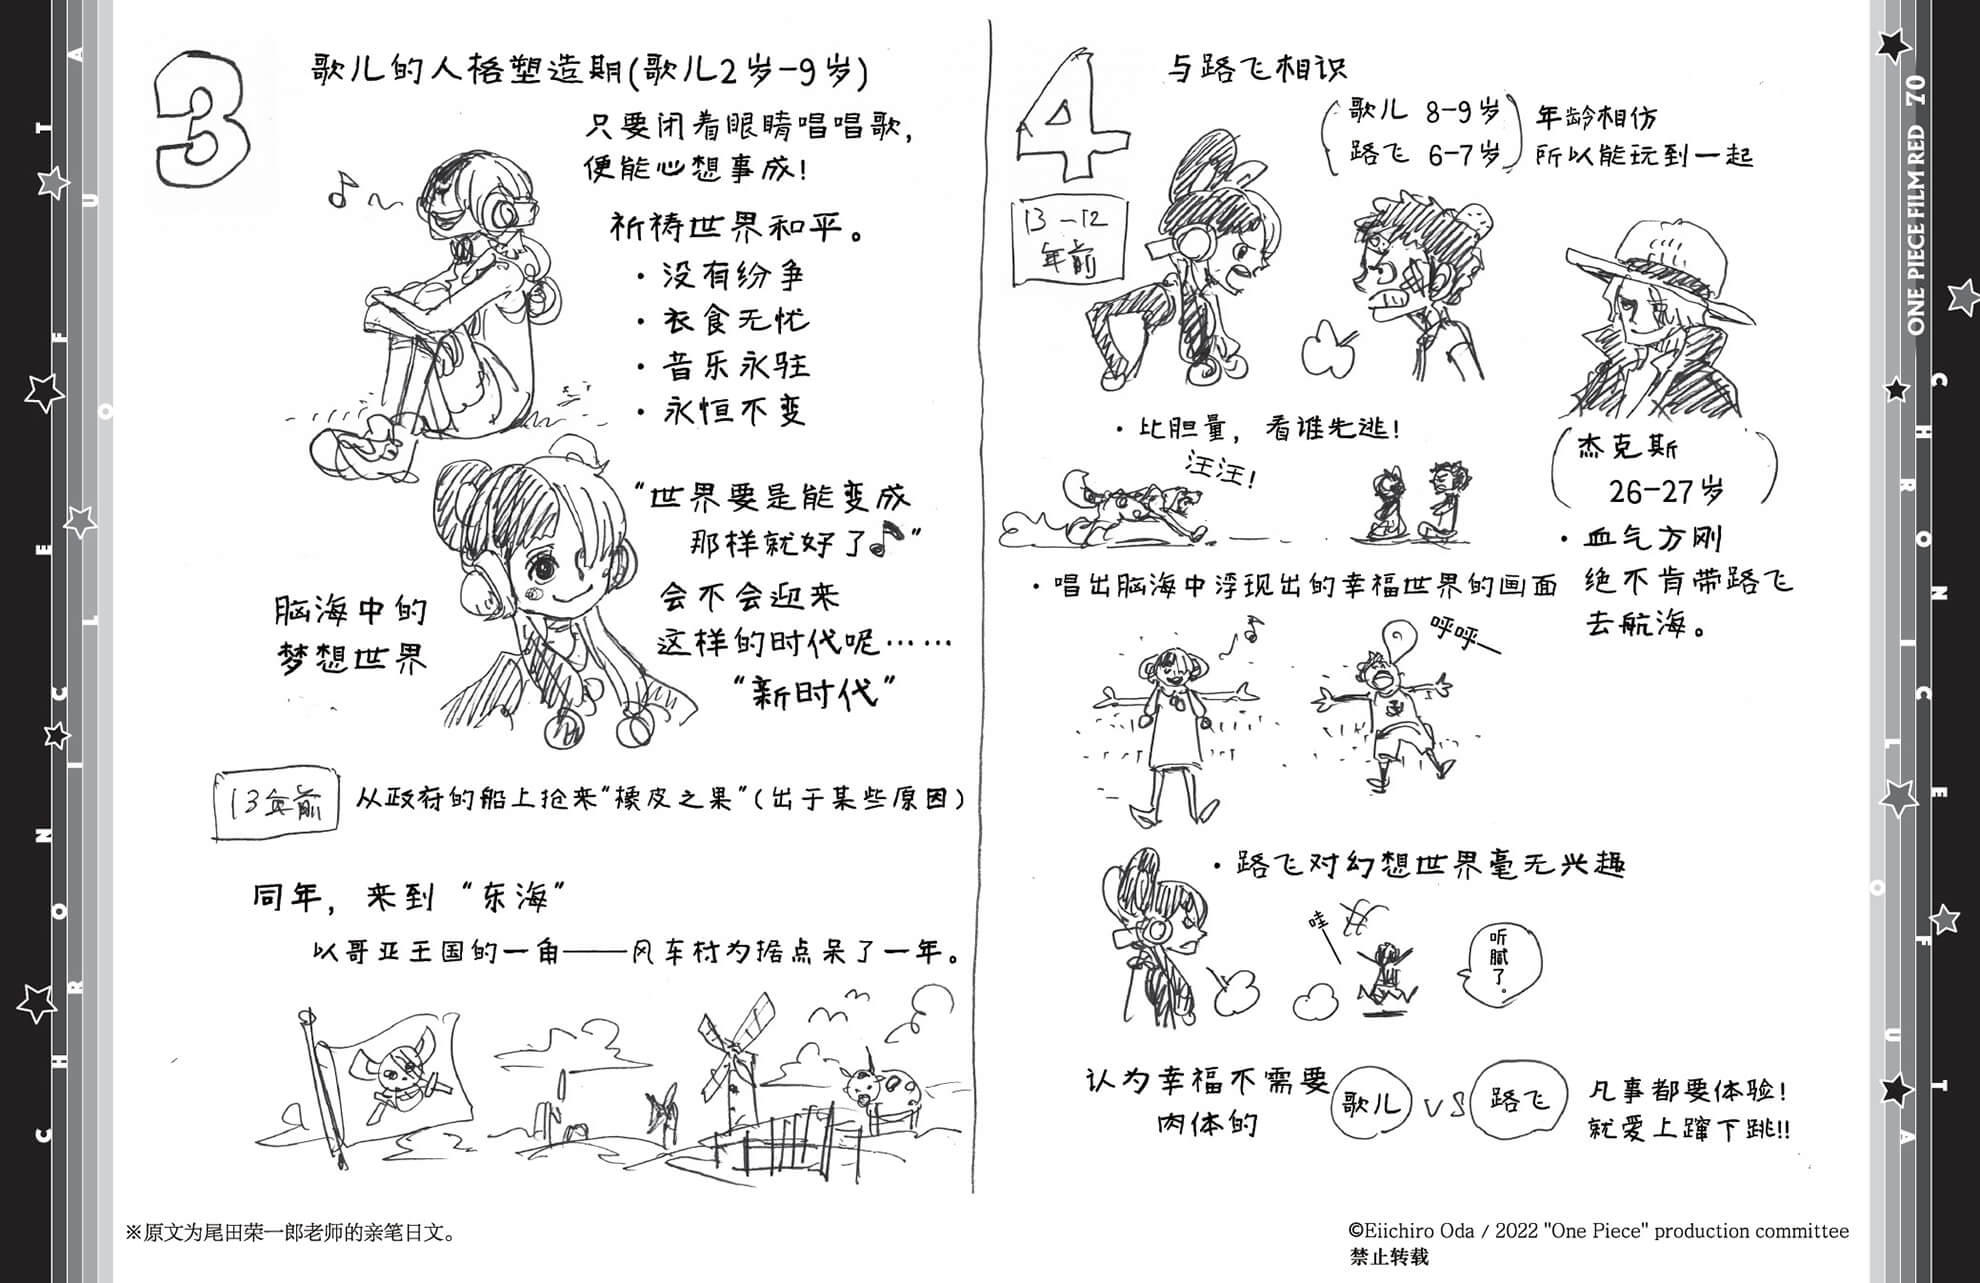 3
歌儿的人格塑造期(歌儿2岁-9岁)
只要闭着眼睛唱唱歌，
便能心想事成！
祈祷世界和平。
・没有纷争
・衣食无忧
・音乐永驻
・永恒不变
“世界要是能变成
那样就好了♪”
会不会迎来
这样的时代呢……
“新时代”
脑海中的
梦想世界
13年前
从政府的船上抢来“橡皮之果”(出于某些原因)
同年，来到“东海”
以哥亚王国的一角——风车村为据点呆了一年。
※原文为尾田荣一郎老师的亲笔日文。
4
与路飞相识
歌儿 8-9岁
路飞 6-7岁
年龄相仿
所以能玩到一起
13-12
年前
・比胆量，看谁先逃！
汪汪！
杰克斯
26-27岁
・血气方刚
绝不肯带路飞
去航海。
・唱出脑海中浮现出的幸福世界的画面
呼呼—
・路飞对幻想世界毫无兴趣
哇—
听腻了。
认为幸福不需要
肉体的
歌儿 VS 路飞
凡事都要体验！
就爱上蹿下跳!!
©Eiichiro Oda / 2022 "One Piece" production committee
禁止转载
CHRONICLE OF UTA
CHRONICLE OF UTA
ONE PIECE FILM RED 70